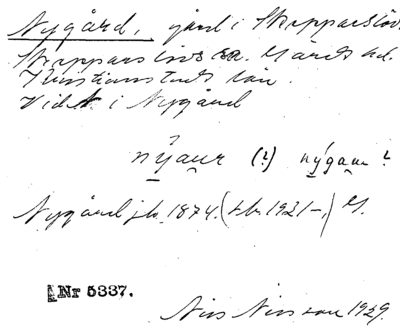 Nygård, gård i Skepparslöv
Skepparslövs sn. Gärds hd.
Kristianstads län.
Vid N. i Nygård
nýaur (?) nýgaur ?
Nygård jb. 1874. (tb. 1931–,) G.
Nr 5337.
Nils Nilsson 1929.